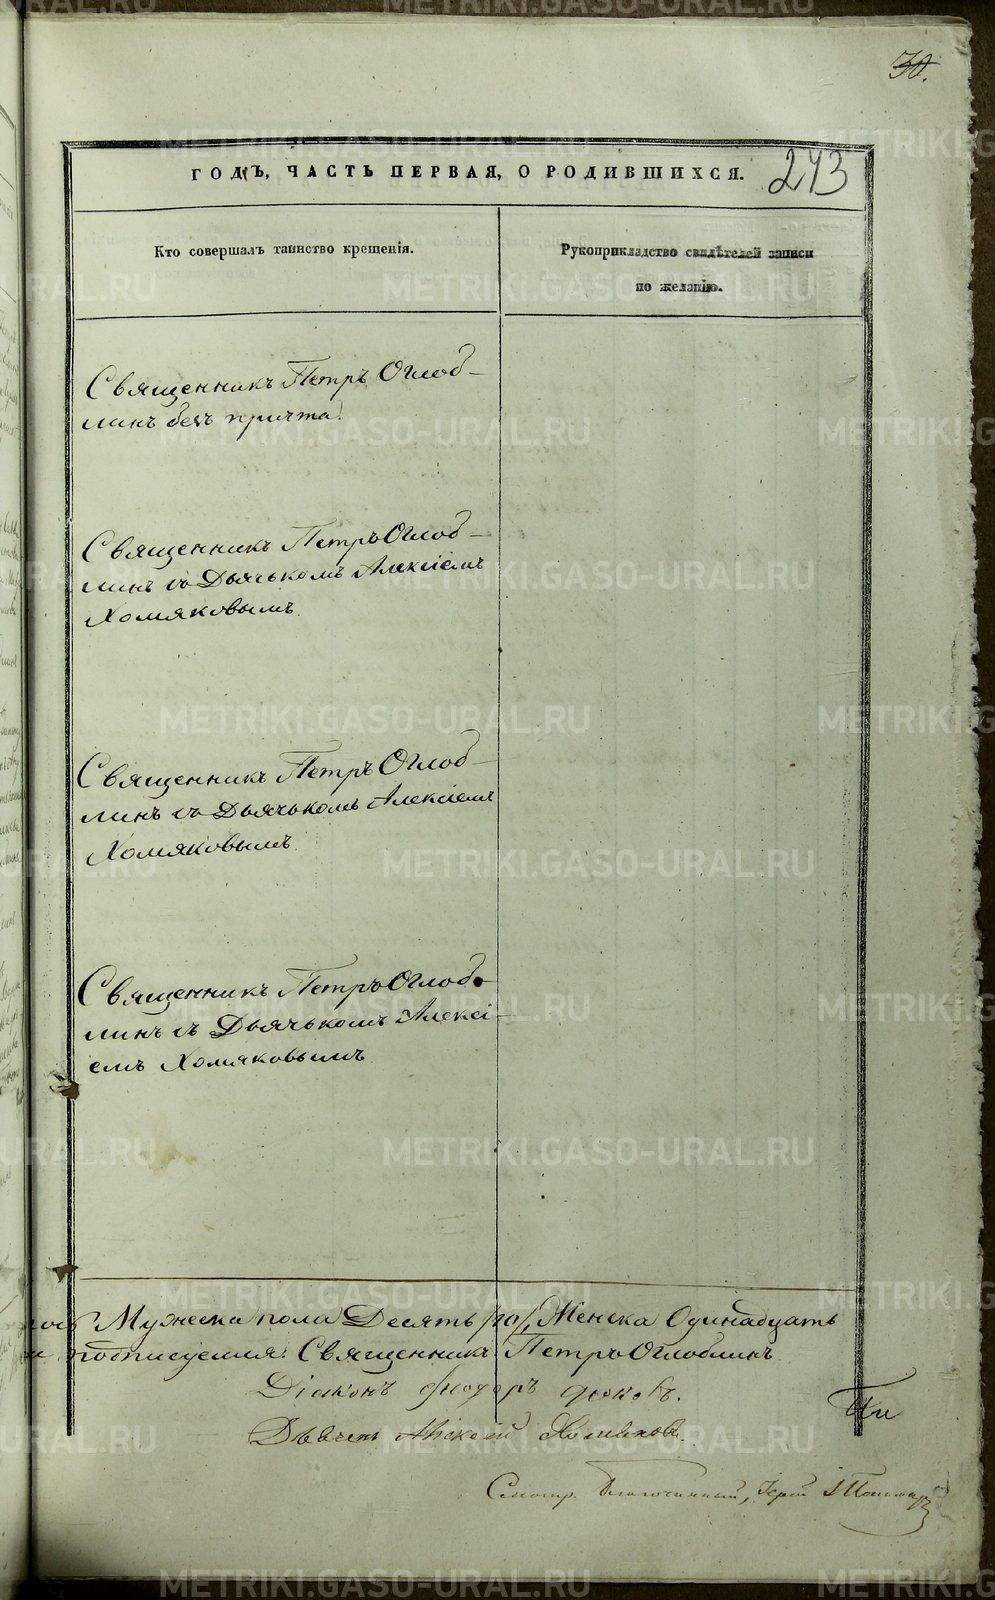 30.
ГОДЪ, ЧАСТЬ ПЕРВАЯ, О РОДИВШИХСЯ.
273
Кто совершалъ таинство крещенія.
Рукоприкладство свидѣтелей записи
по желанію.
Священникъ Петръ Оглоб-
линъ безъ причта.
Священникъ Петръ Оглоб-
линъ съ Дьячькомъ Алексіемъ
Хомяковымъ
Священникъ Петръ Оглоб-
линъ съ Дьячькомъ Алексіемъ
Хомяковымъ
Священникъ Петръ Оглоб-
линъ съ Дьячькомъ Алексі-
емъ Хомяковымъ
Мужеска пола Десять /10/, Женска Одинадцать
подписуемся: Священникъ Петръ Оглоблинъ
Діаконъ Ѳеодоръ
Дьячекъ Алексѣй Хомяковъ
Смотр. Благочинный, Іерей
METRIKI.GASO-URAL.RU